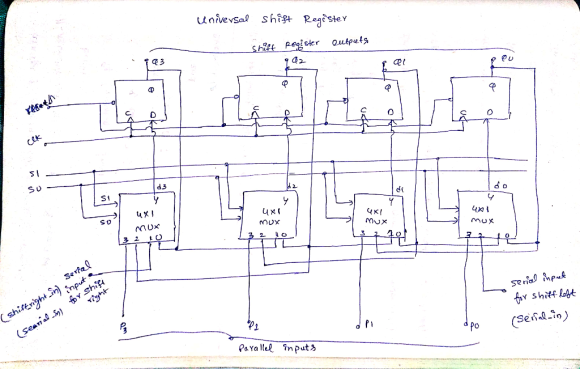 Universal Shift Register
Shift Register Outputs
Q3 Q2 Q1 Q0
Q Q Q Q
C D C D C D C D
Clk
S1
S0
d3 d2 d1 d0
S1 Y Y Y Y
S0
4x1 4x1 4x1 4x1
MUX MUX MUX MUX
3 2 1 0 3 2 1 0 3 2 1 0 3 2 1 0
serial
(shiftright_in) input
(serial_in) for shift
right
serial input
for shift left
(Serial_in)
P3 P1 P1 P0
Parallel inputs